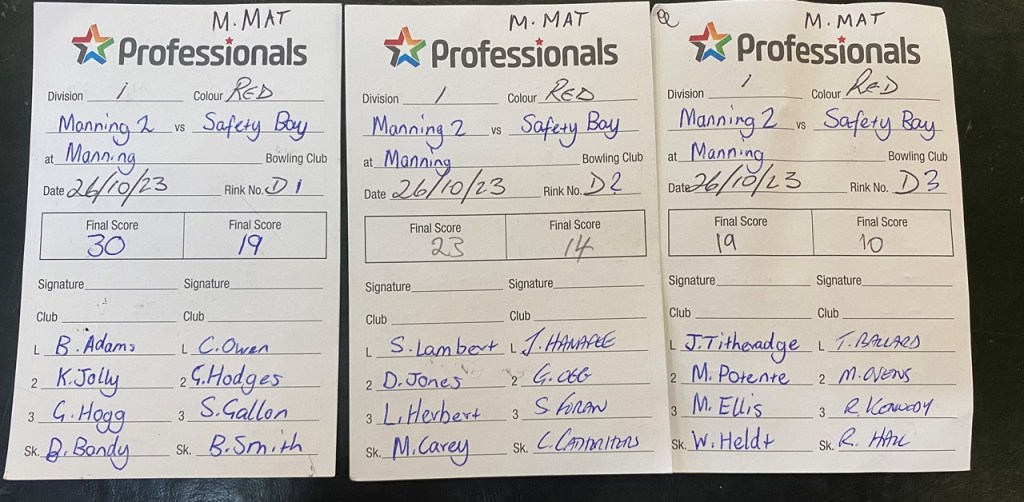 M. MAT
Professionals
Division 1 Colour RED
Manning 2 vs Safety Bay
at Manning Bowling Club
Date 26/10/23 Rink No. D1
Final Score Final Score
30 19
Signature Signature
Club Club
L B. Adams L C. Owen
2 K. Jolly 2 G. Hodges
3 G. Hogg 3 S. Gallon
Sk. B. Bandy Sk. B. Smith
M. MAT
Professionals
Division 1 Colour RED
Manning 2 vs Safety Bay
at Manning Bowling Club
Date 26/10/23 Rink No. D2
Final Score Final Score
23 14
Signature Signature
Club Club
L S. Lambert L J.
2 D. Jones 2 G. OGG
3 L. Herbert 3 S FORAN
Sk. M. Carey Sk. C.
M. MAT
Professionals
Division 1 Colour RED
Manning 2 vs Safety Bay
at Manning Bowling Club
Date 26/10/23 Rink No. D3
Final Score Final Score
19 10
Signature Signature
Club Club
L J. Titheradge L T. BALLARD
2 M. Potente 2 M. OVENS
3 M. Ellis 3 R. KENNEDY
Sk. W. Heldt Sk. R. HALL